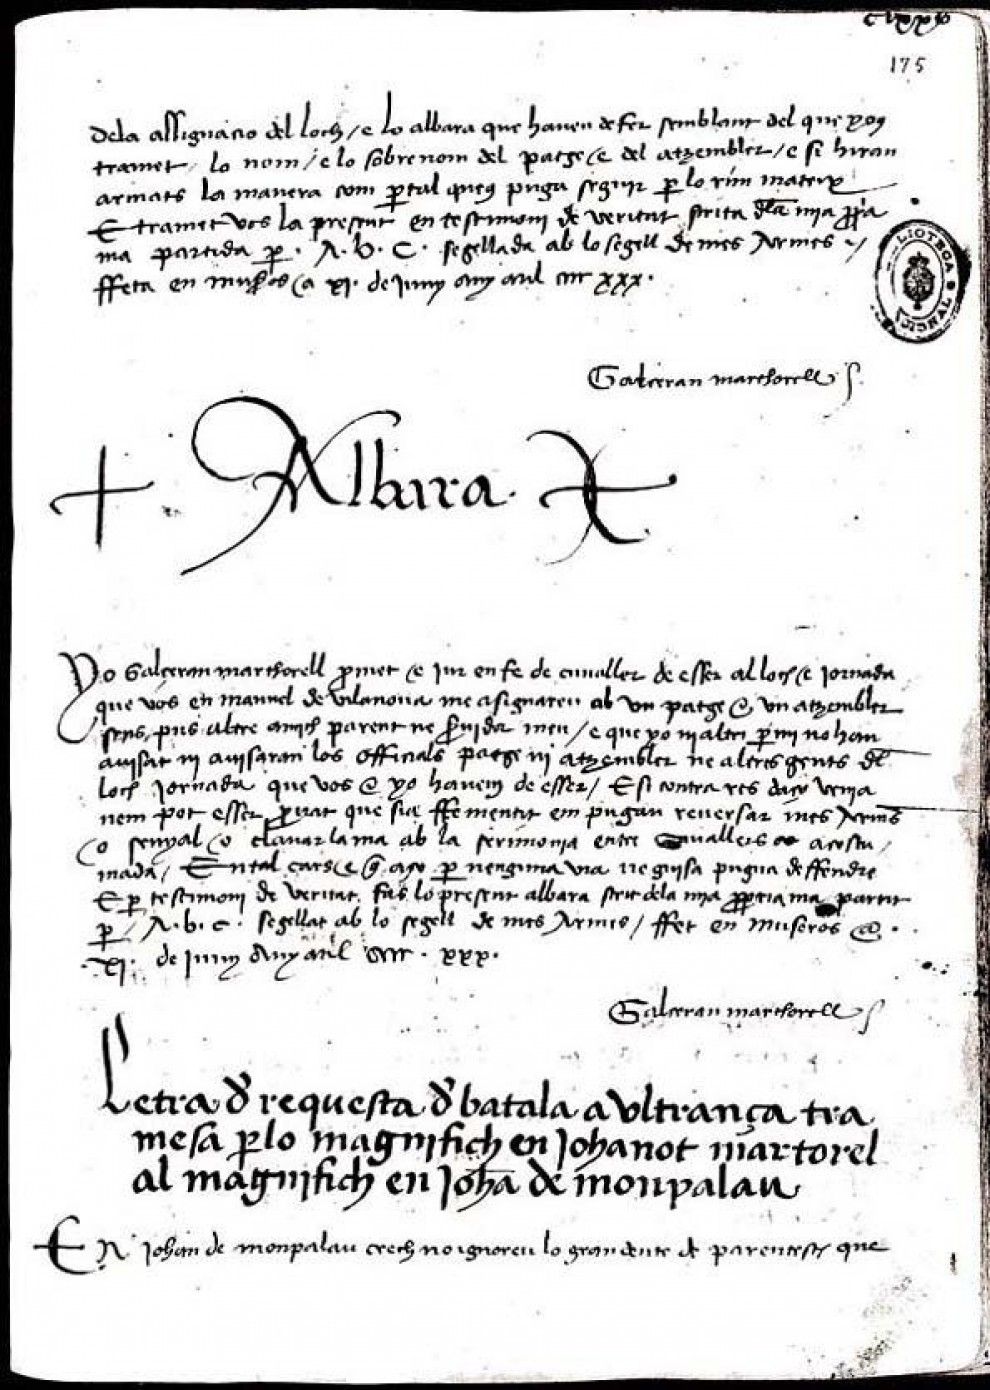 clxxv
175
dela assignacio del loch / e lo albara que haveu de fer semblant del que yous
tramet / lo nom / e lo sobrenom del patge e del atzembler / e si hiran
armats la manera com per tal queus puga seguir per lo rim mateix
E tramet vos la present en testimoni de veritat scrita dla mia ppia
ma partida per . A . b . C . segellada ab lo segell de mes Armes /
ffeta en musros a xi . de Juny any mil cccc xxx .
BIBLIOTECA NACIONAL
Galceran marthorell
Albara .
Yo Galceran marthorell pmet e jur en fe de cavaller de esser al loch e jornada
que vos en manuel de vilanova me asignareu ab vn patge e vn atzembler
sens pus altre amich parent ne seruidor meu / e que yo ni altri per mi no han
auisat ni auisaran los officials patge ni atzembler ne altres gents dl
loch jornada que vos e yo havem de esser / E si contra res daço venia
nem pot esser prouat que sia ffementit em pugau reuersar mes Armes
o senyal o clauar la ma ab la serimonia entre cavallers acostu /
mada / E n tal cars e q aço per nenguna via ne guisa puga deffendre
E per testimoni de veritat fas lo present albara scrit dela mia ppria ma partit
per / A . b . c . segellat ab lo segell de mes Armes / ffet en museros a .
. xi . de Juny Any mil cccc . xxx .
Galceran marthorell
Letra d requesta d batala a vltrança tra
mesa perlo magnifich en Johanot martorel
al magnifich en Joha de monpalau
En Johan de monpalau crech no ignoreu lo gran deute de parentesch que